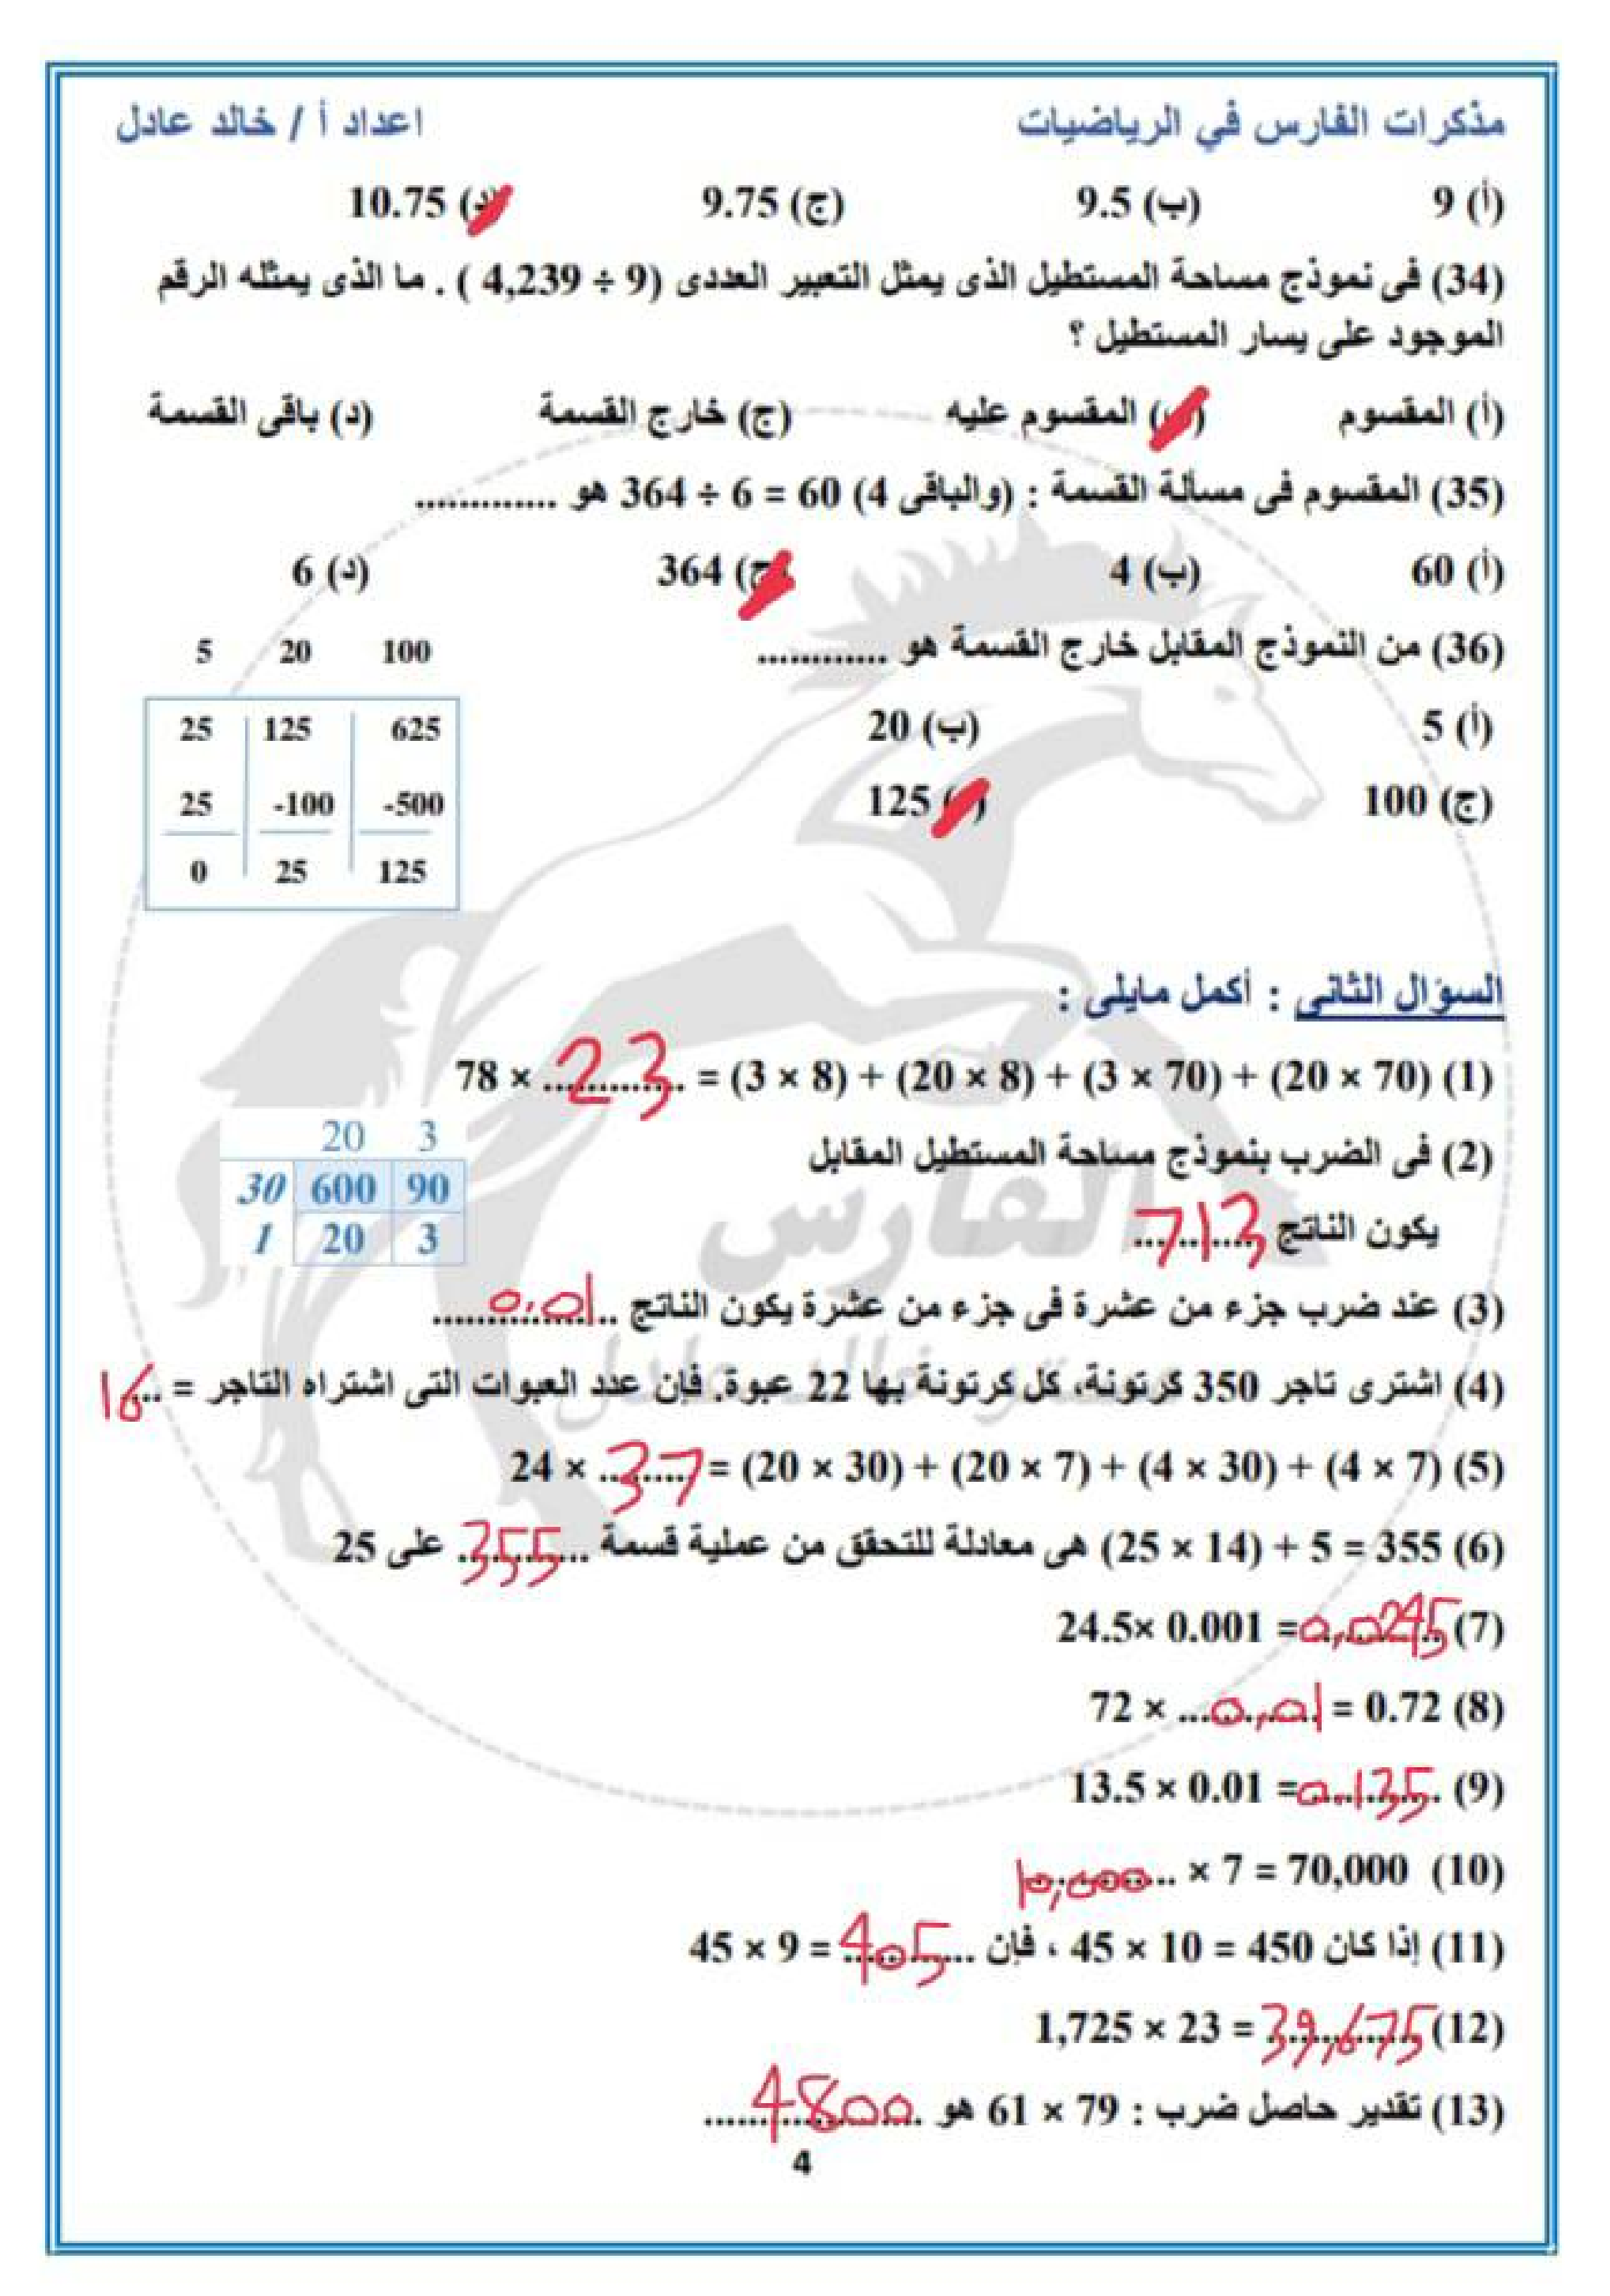 مذكرات الفارس في الرياضيات اعداد أ / خالد عادل
(أ) 9 (ب) 9.5 (ج) 9.75 (د) 10.75
(34) فى نموذج مساحة المستطيل الذى يمثل التعبير العددى (9 ÷ 4,239 ) . ما الذى يمثله الرقم
الموجود على يسار المستطيل ؟
(أ) المقسوم (ب) المقسوم عليه (ج) خارج القسمة (د) باقى القسمة
(35) المقسوم فى مسألة القسمة : (والباقى 4) 60 = 6 ÷ 364 هو .............
(أ) 60 (ب) 4 (ج) 364 (د) 6
(36) من النموذج المقابل خارج القسمة هو ............
5 20 100
(أ) 5 (ب) 20
25 125 625
(ج) 100 (د) 125
25 -100 -500
0 25 125
السؤال الثانى : أكمل مايلى :
(1) 78 × 23 = (3 × 8) + (20 × 8) + (3 × 70) + (20 × 70)
(2) فى الضرب بنموذج مساحة المستطيل المقابل
20 3
30 600 90
1 20 3
يكون الناتج 713
(3) عند ضرب جزء من عشرة فى جزء من عشرة يكون الناتج 0.01
(4) اشترى تاجر 350 كرتونة، كل كرتونة بها 22 عبوة. فإن عدد العبوات التى اشتراه التاجر = 16
(5) 24 × 37 = (20 × 30) + (20 × 7) + (4 × 30) + (4 × 7)
(6) (25 × 14) + 5 = 355 هى معادلة للتحقق من عملية قسمة 355 على 25
(7) 24.5× 0.001 =0,0245
(8) 72 × 0,01 = 0.72
(9) 13.5 × 0.01 =0.135
(10) 10,000 × 7 = 70,000
(11) إذا كان 450 = 10 × 45 ، فإن 45 × 9 = 405
(12) 1,725 × 23 = 39,675
(13) تقدير حاصل ضرب : 79 × 61 هو 4800
4
الفارس